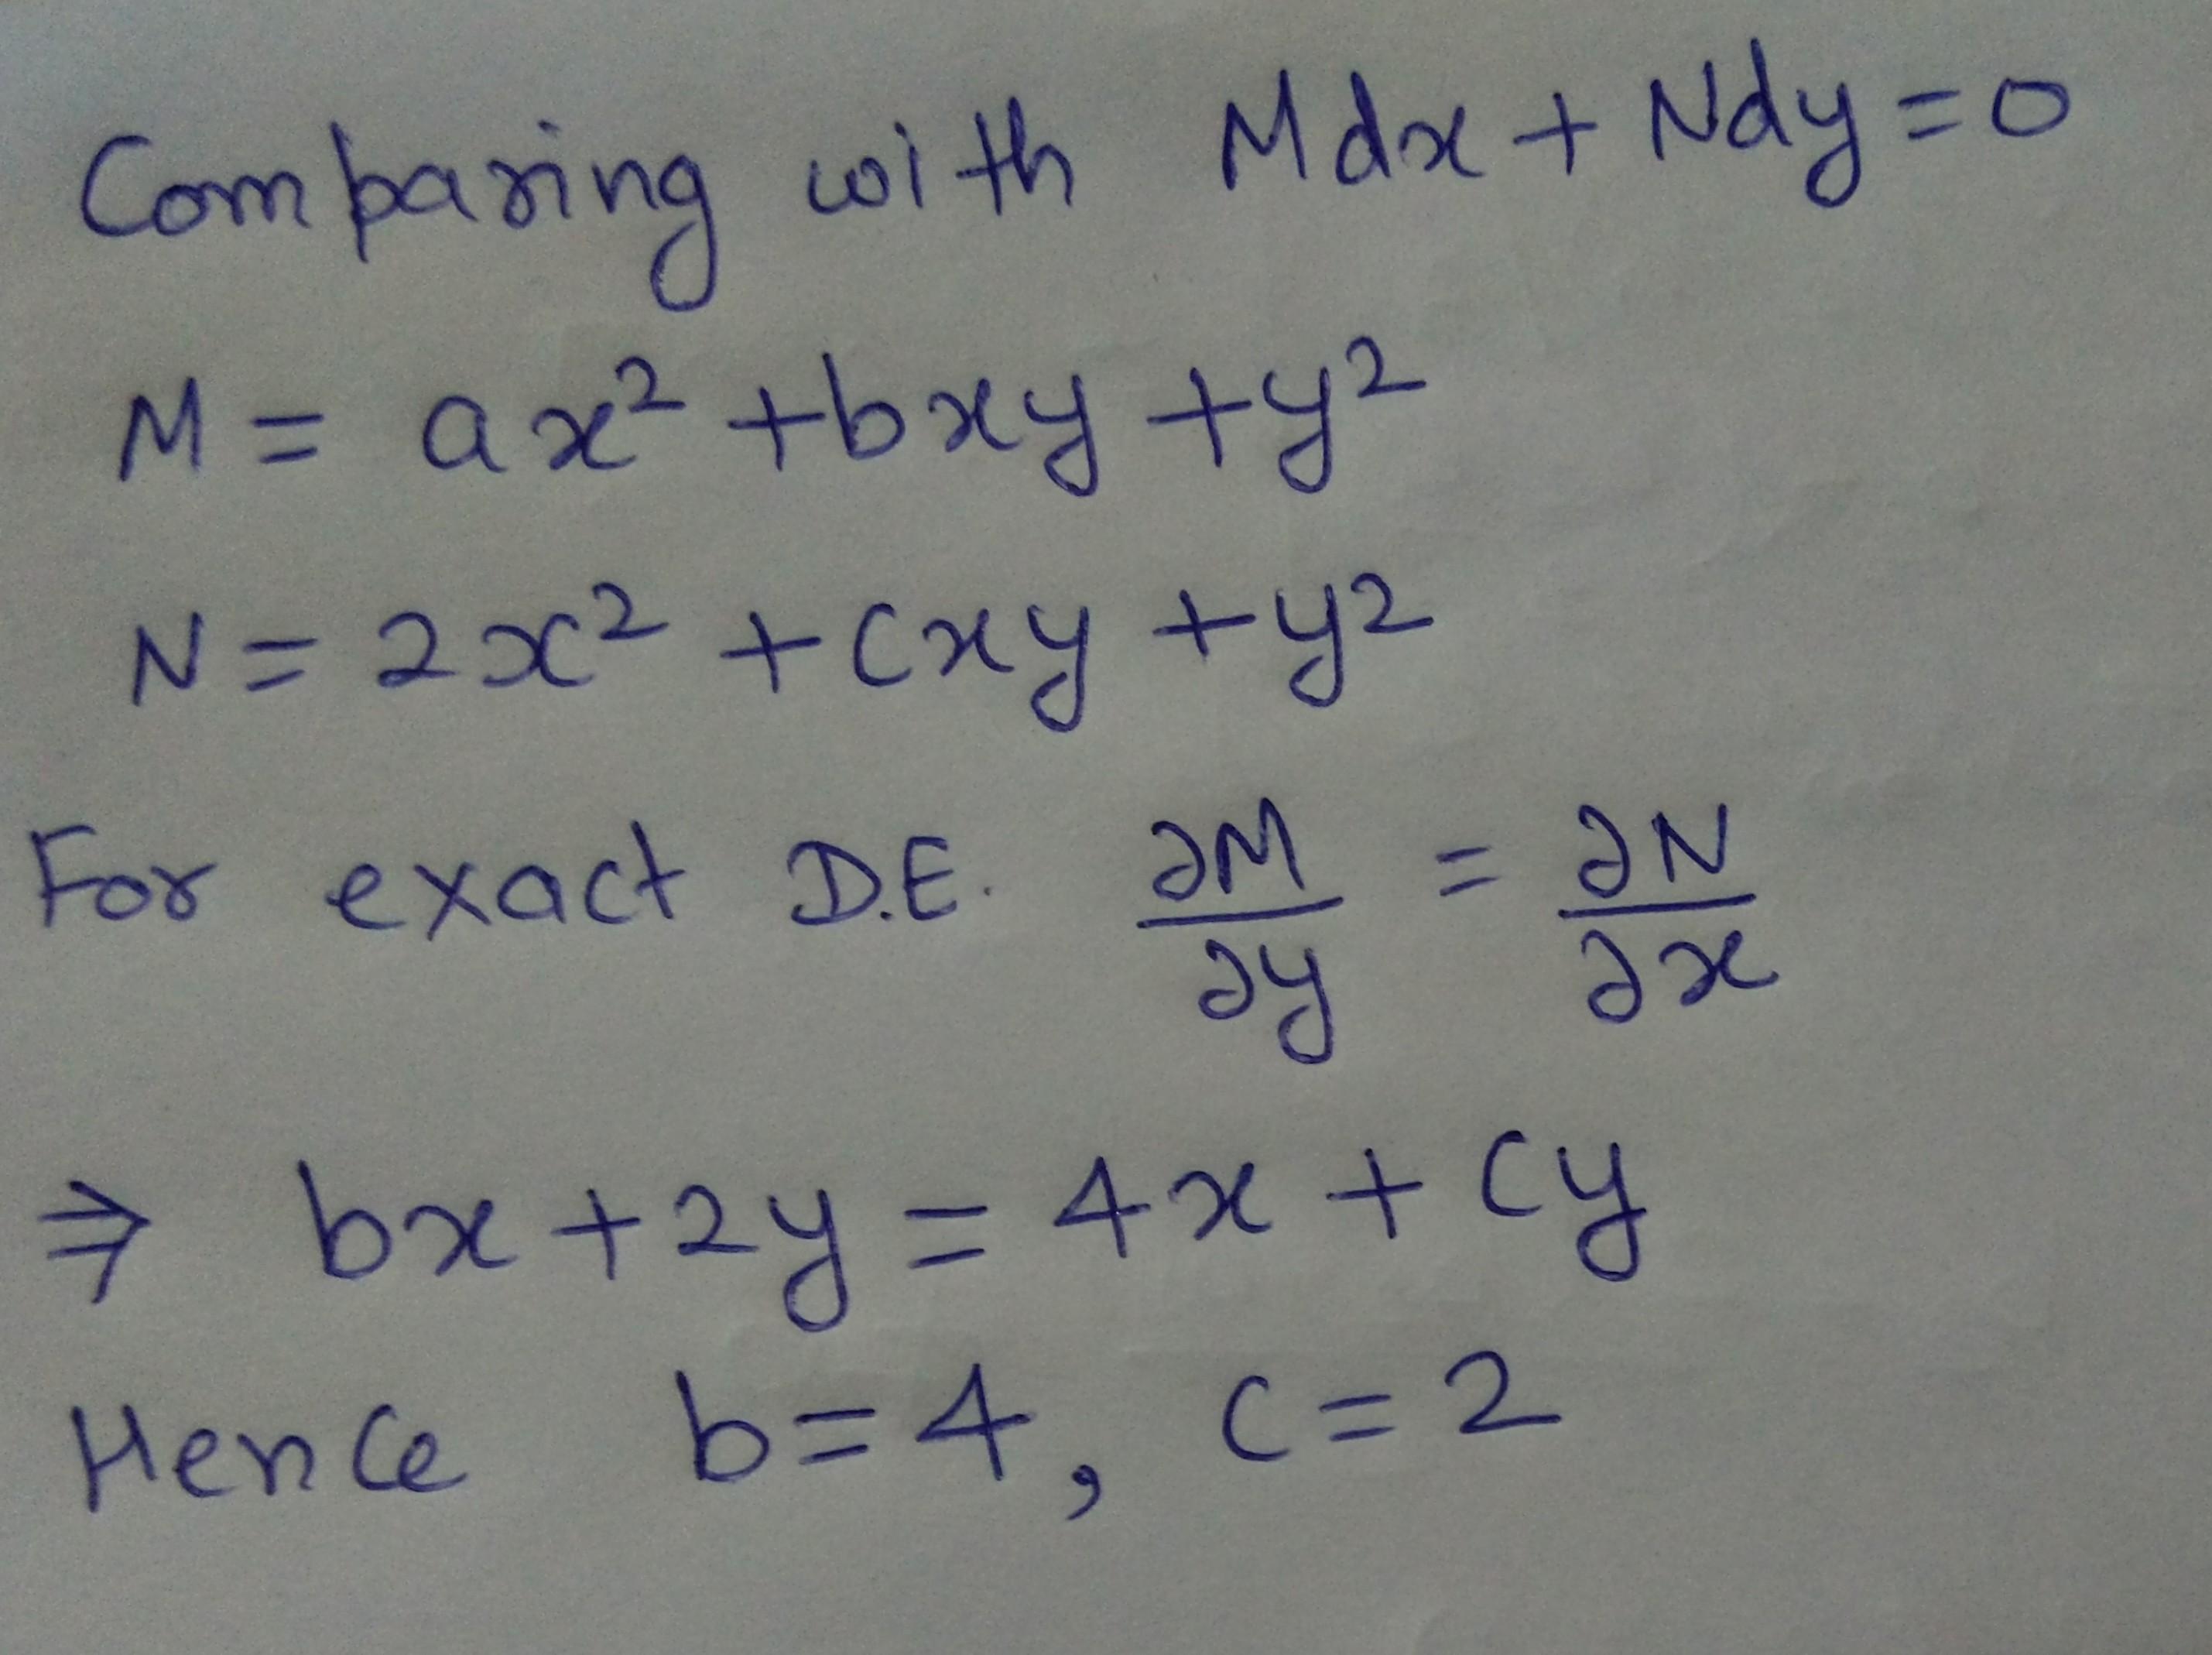 Comparing with Mdx + Ndy = 0
M = ax² + bxy + y²
N = 2x² + cxy + y²
For exact D.E. ∂M/∂y = ∂N/∂x
⇒ bx + 2y = 4x + cy
Hence b = 4, c = 2